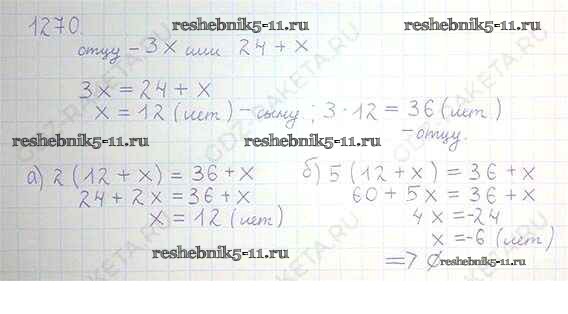 1270.
reshebnik5-11.ru
reshebnik5-11.ru
отцу - 3x или 24 + x
3x = 24 + x
x = 12 (лет) - сыну ; 3 · 12 = 36 (лет)
- отцу.
reshebnik5-11.ru
reshebnik5-11.ru
а) 2 (12 + x) = 36 + x
24 + 2x = 36 + x
x = 12 (лет)
б) 5 (12 + x) = 36 + x
60 + 5x = 36 + x
4x = -24
x = -6 (лет)
=> ∅
reshebnik5-11.ru
reshebnik5-11.ru
GDZ-RAKETA.RU